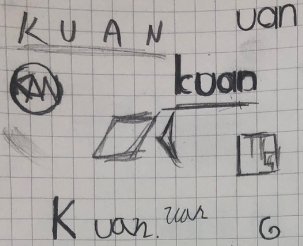 KUAN
uan
KAN
kuan
Kuan. uan
G